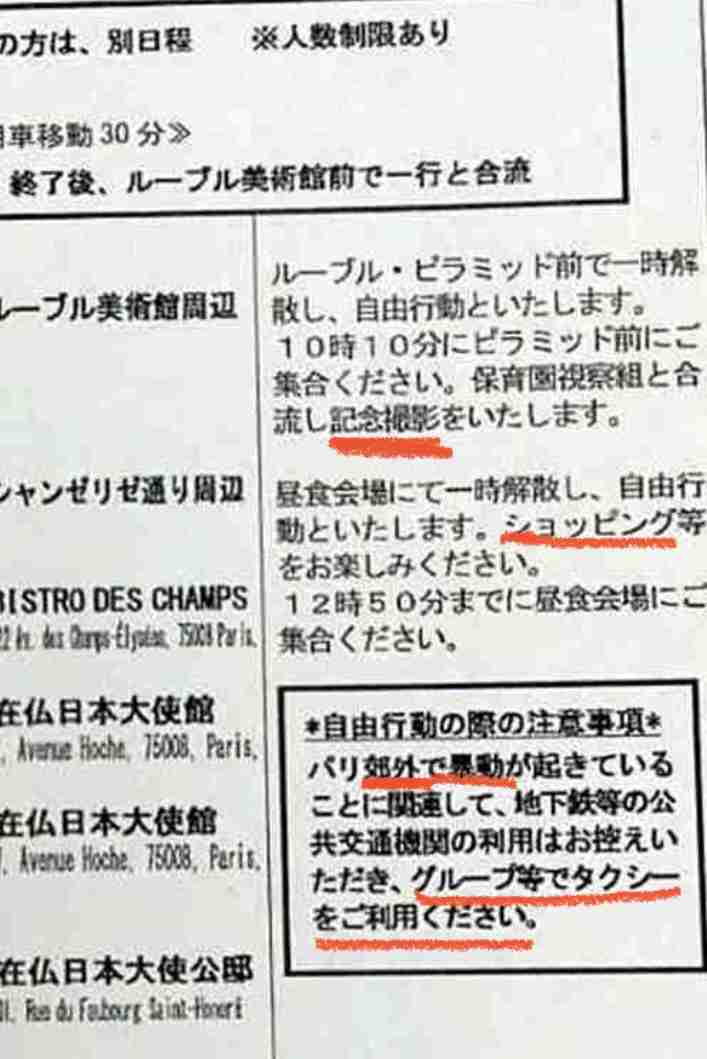 の方は、別日程　※人数制限あり
車移動30分≫
終了後、ルーブル美術館前で一行と合流
ルーブル美術館周辺
ルーブル・ピラミッド前で一時解
散し、自由行動といたします。
１０時１０分にピラミッド前にご
集合ください。保育園視察組と合
流し記念撮影をいたします。
シャンゼリゼ通り周辺
昼食会場にて一時解散し、自由行
動といたします。ショッピング等
をお楽しみください。
１２時５０分までに昼食会場にご
集合ください。
BISTRO DES CHAMPS
des Champs-Élysées, 75008 Paris,
在仏日本大使館
, Avenue Hoche, 75008, Paris,
在仏日本大使館
, Avenue Hoche, 75008, Paris,
在仏日本大使公邸
Rue du Faubourg Saint-Honoré
*自由行動の際の注意事項*
パリ郊外で暴動が起きている
ことに関連して、地下鉄等の公
共交通機関の利用はお控えい
ただき、グループ等でタクシー
をご利用ください。